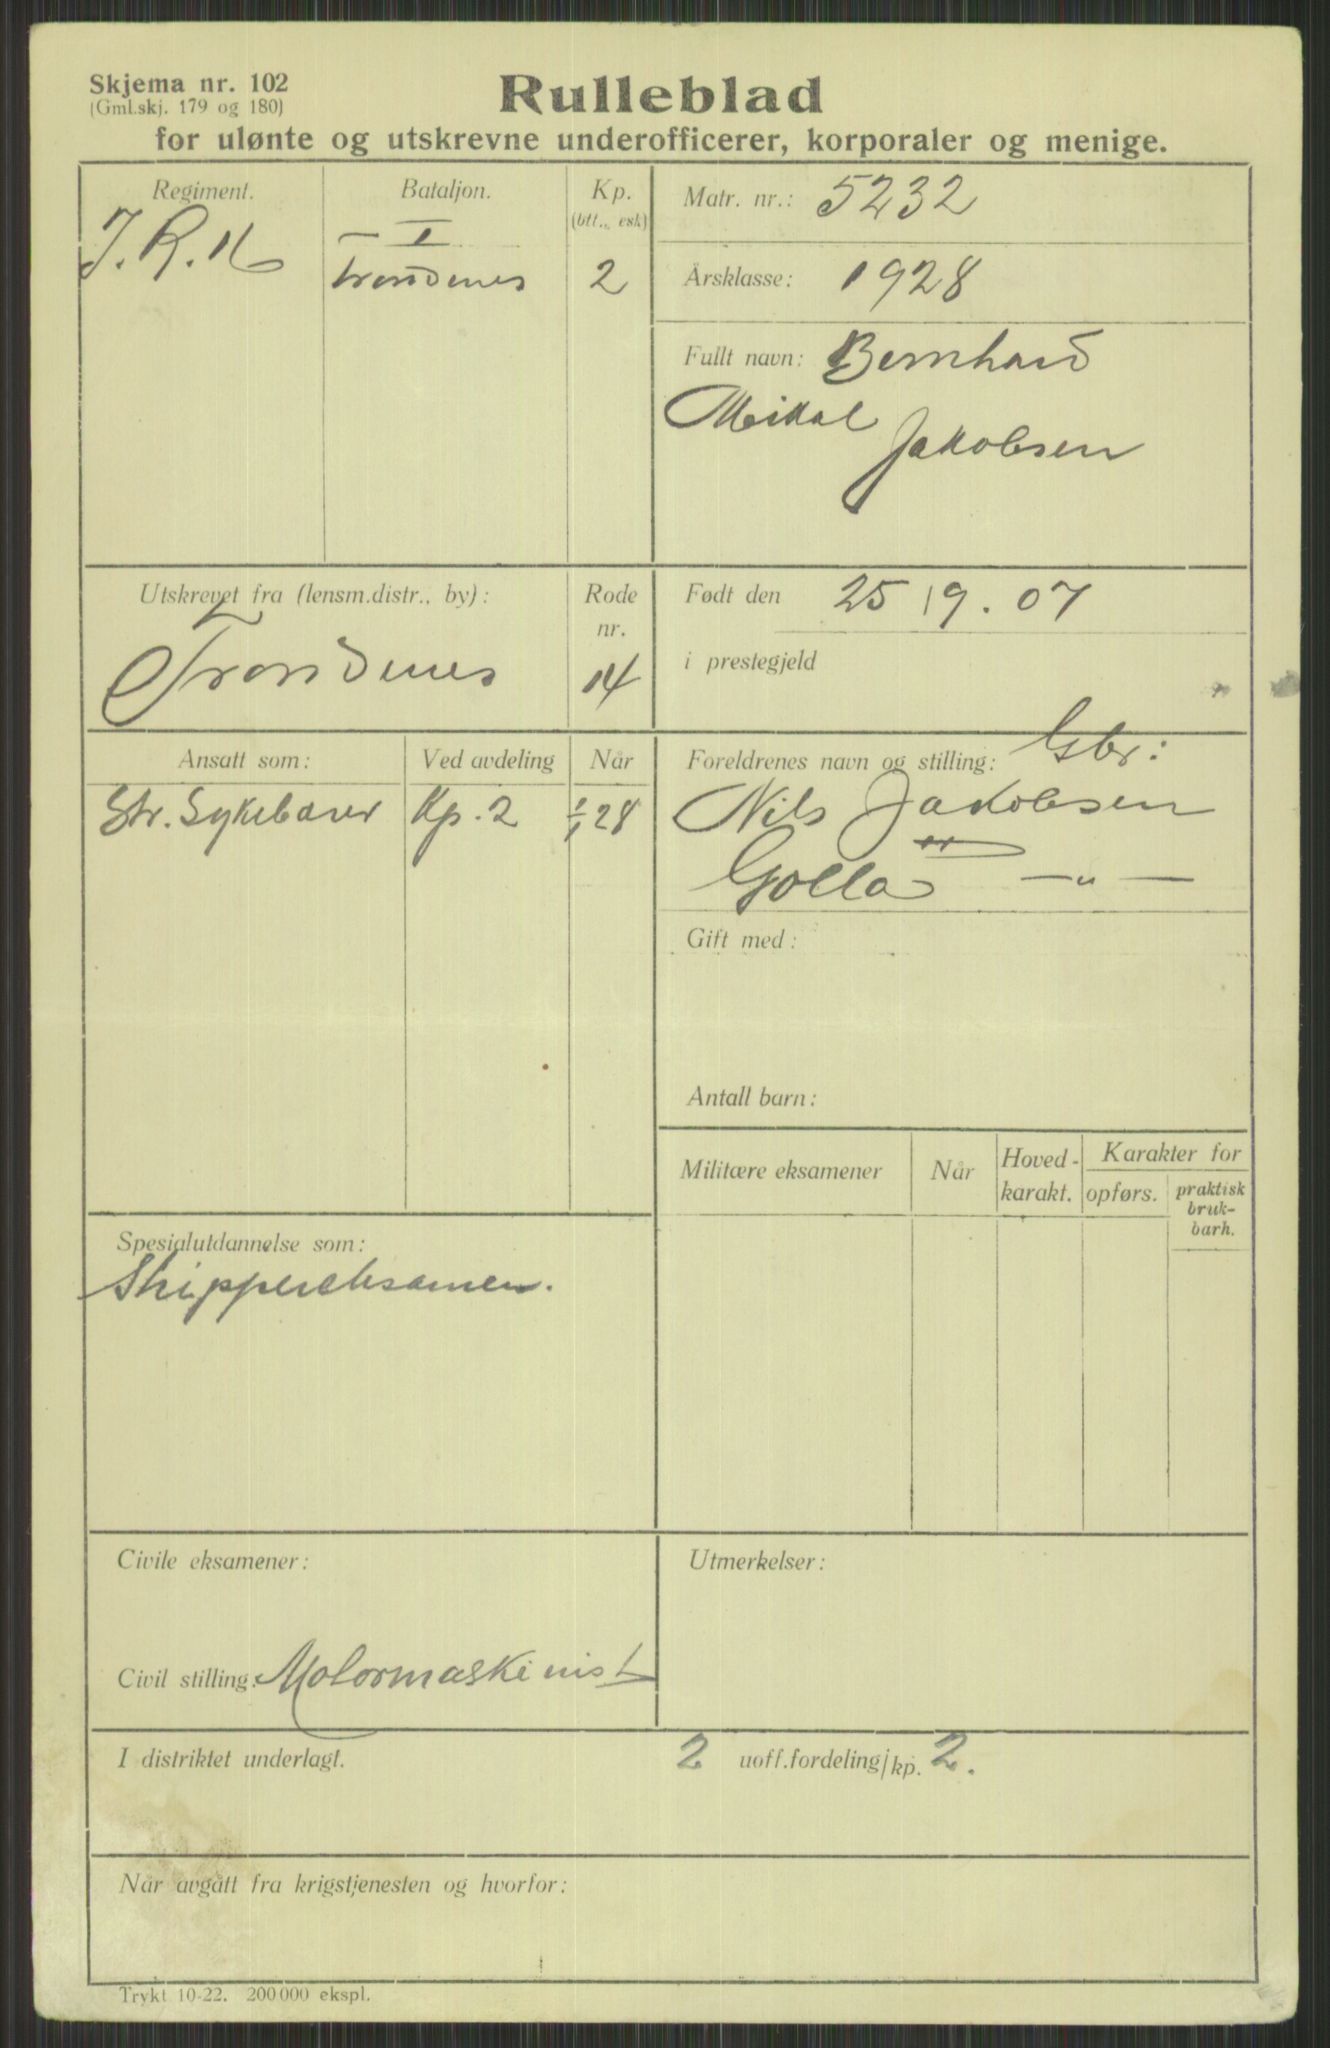 Skjema nr. 102
(Gml.skj. 179 og 180)
Rulleblad
for ulønte og utskrevne underofficerer, korporaler og menige.
Regiment.
J. R. 16
Bataljon.
I
Trondenes
Kp.
(btt., esk)
2
Matr. nr.: 5232
Årsklasse: 1928
Fullt navn: Bernhard
Mikal
Jakobsen
Utskrevet fra (lensm.distr., by):
Trondenes
Rode
nr.
14
Født den 25/9. 07
i prestegjeld
Ansatt som:
Str. Sykebærer
Ved avdeling
Kp. 2
Når
1/1 28
Foreldrenes navn og stilling: Gbr:
Nils Jakobsen
Golla — " —
Gift med:
Antall barn:
Militære eksamener
Når
Hoved-
karakt.
Karakter for
opførs.
praktisk
bruk-
barh.
Spesialutdannelse som:
Skippereksamen.
Civile eksamener:
Civil stilling: Motormaskinist
Utmerkelser:
I distriktet underlagt. 2 uoff.fordeling/kp. 2.
Når avgått fra krigstjenesten og hvorfor:
Trykt 10-22. 200 000 ekspl.